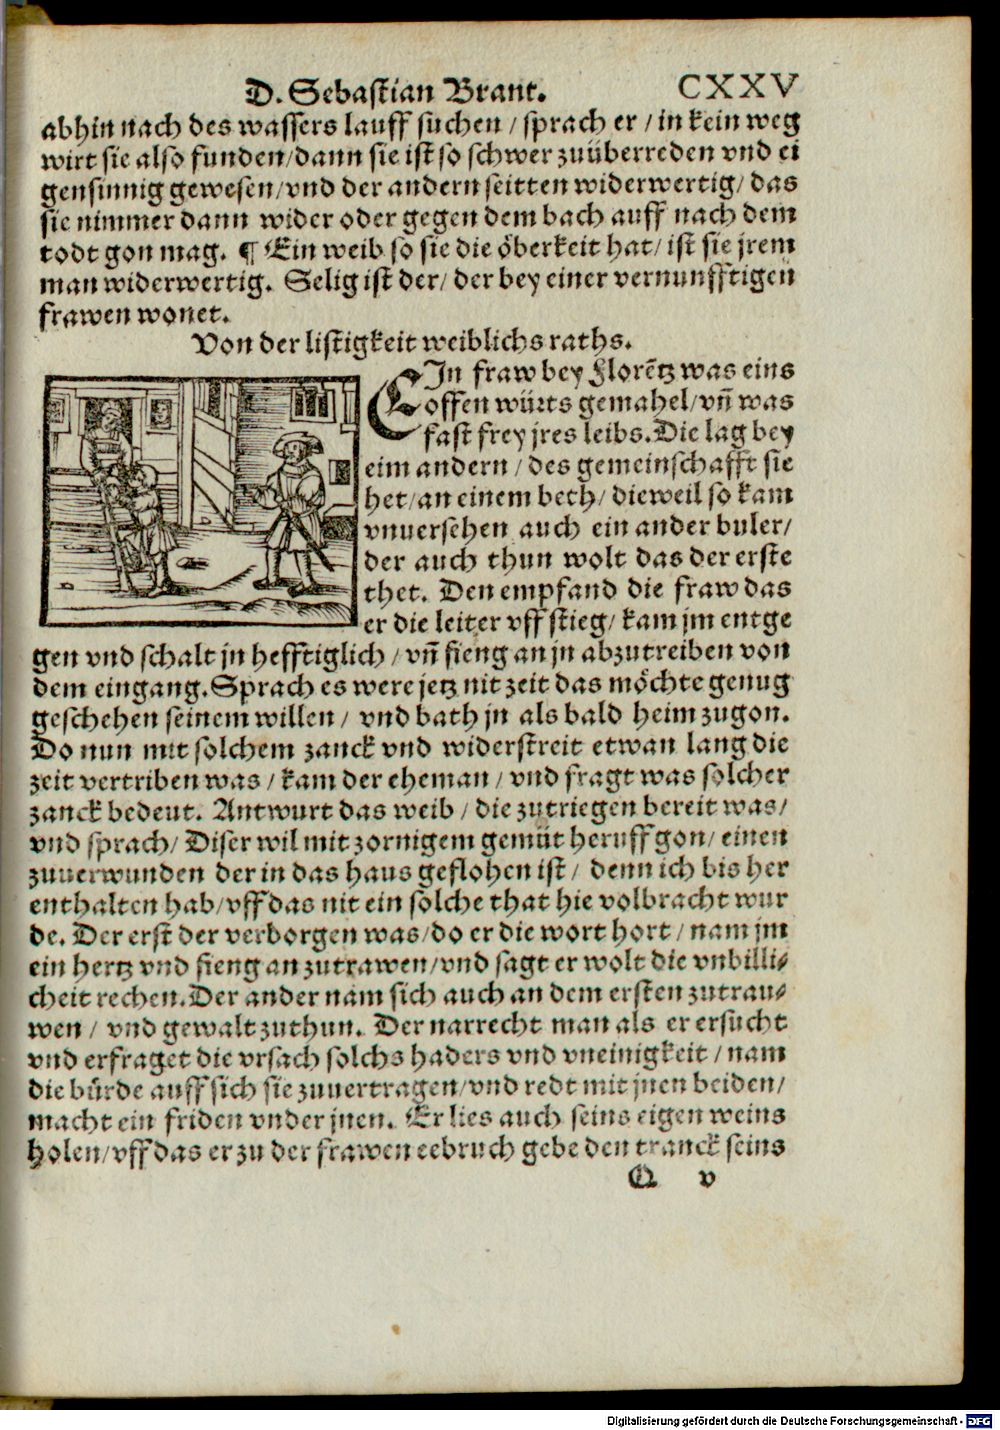 D. Sebastian Brant. CXXV
abhin nach des wassers lauff suchen / sprach er / in kein weg
wirt sie also funden / dann sie ist so schwer zuüberreden vnd ei
gensinnig gewesen / vnd der andern seitten widerwertig / das
sie nimmer dann wider oder gegen dem bach auff nach dem
todt gon mag. ¶ Ein weib so sie die öberkeit hat / ist sie jrem
man widerwertig. Selig ist der / der bey einer vernunfftigen
frawen wonet.
Von der listigkeit weiblichs raths.
EIn fraw bey Florẽtz was eins
offen würts gemahel / vñ was
fast frey jres leibs. Die lag bey
eim andern / des gemeinschafft sie
het / an einem beth / dieweil so kam
vnuersehen auch ein ander buler /
der auch thun wolt das der erste
thet. Den empfand die fraw das
er die leiter vff stieg / kam jm entge
gen vnd schalt jn hefftiglich / vñ fieng an jn abzutreiben von
dem eingang. Sprach es were jetz nit zeit das möchte genug
geschehen seinem willen / vnd bath jn als bald heim zugon.
Do nun mit solchem zanck vnd widerstreit etwan lang die
zeit vertriben was / kam der eheman / vnd fragt was solcher
zanck bedeut. Antwurt das weib / die zutriegen bereit was /
vnd sprach / Diser wil mit zornigem gemüt heruff gon / einen
zuuerwunden der in das haus geflohen ist / denn ich bis her
enthalten hab / vff das nit ein solche that hie volbracht wur
de. Der erst der verborgen was / do er die wort hort / nam jm
ein hertz vnd fieng an zutrawen / vnd sagt er wolt die vnbilli⸗
cheit rechen. Der ander nam sich auch an dem ersten zutrau⸗
wen / vnd gewalt zuthun. Der narrecht man als er ersucht
vnd erfraget die vrsach solchs haders vnd vneinigkeit / nam
die bürde auff sich sie zuuertragen / vnd redt mit jnen beiden /
macht ein friden vnder jnen. Er lies auch seins eigen weins
holen / vff das er zu der frawen eebruch gebe den tranck seins
Q v
Digitalisierung gefördert durch die Deutsche Forschungsgemeinschaft - DFG